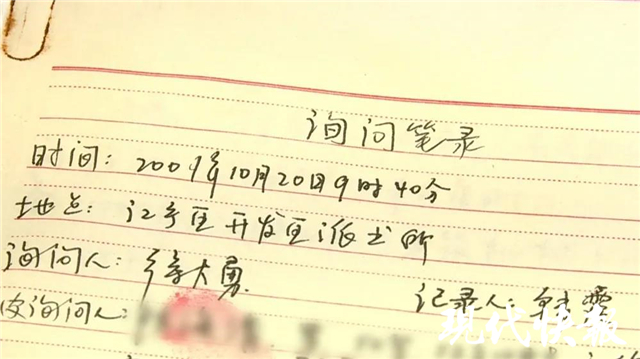 询问笔录
时间：2009年10月20日9时40分
地点：江宁区开发区派出所
询问人：徐大勇 记录人：
被询问人：
现代快报